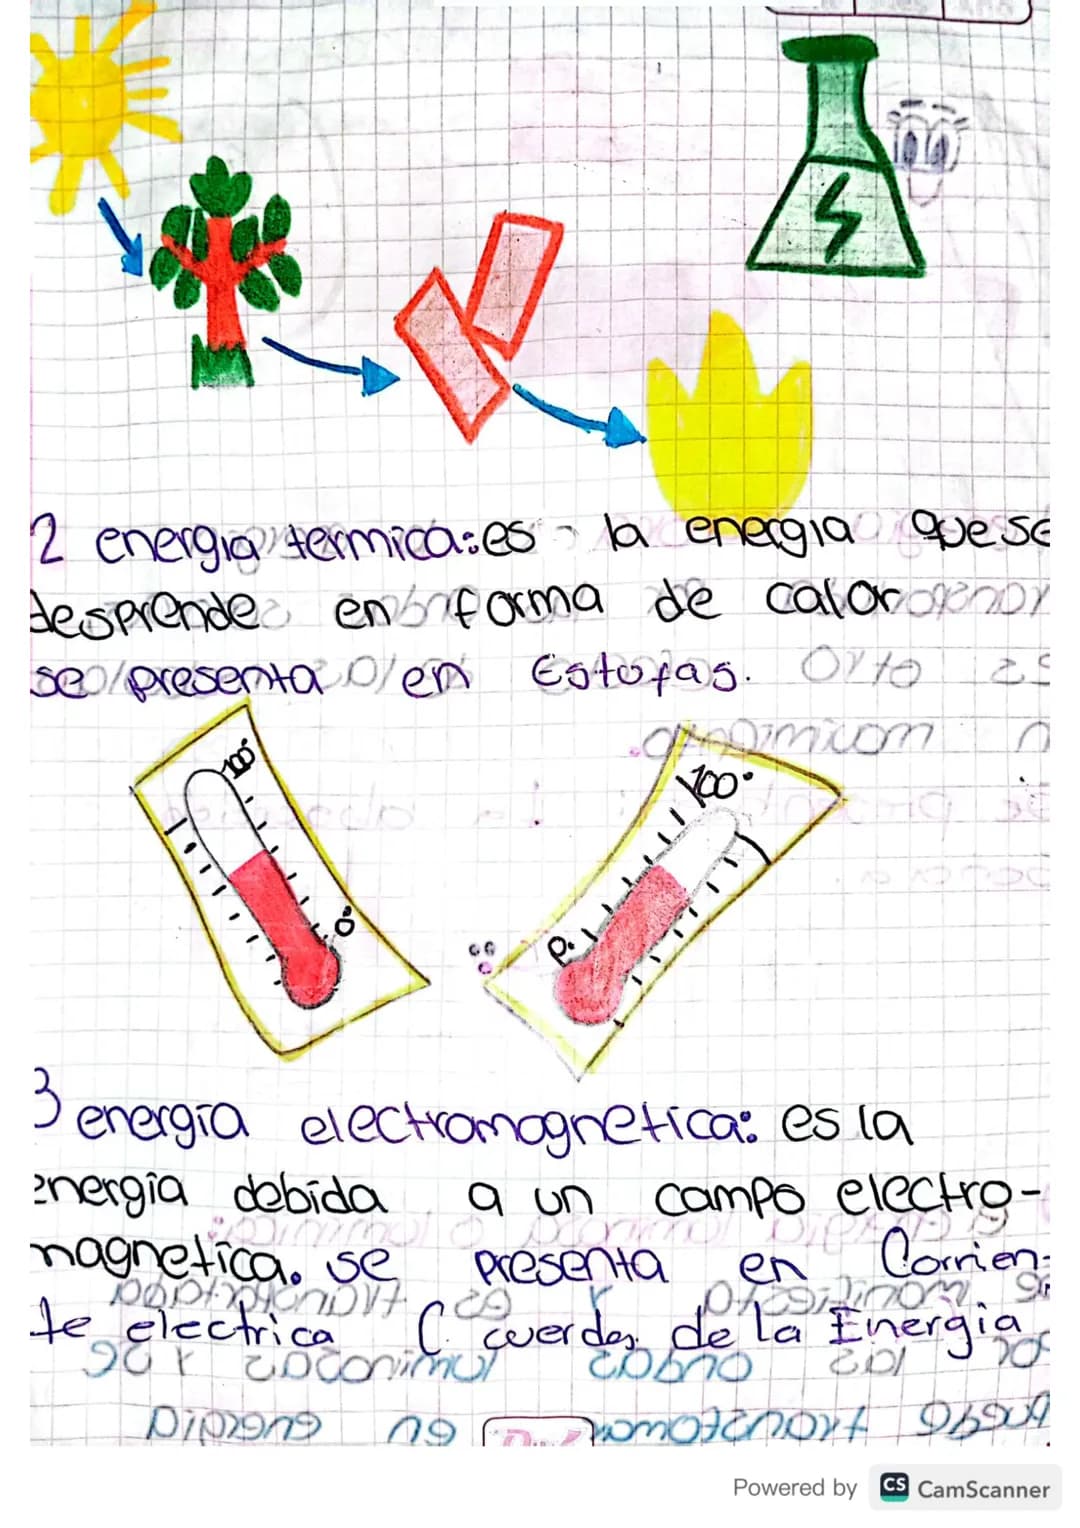 2 energia termica: es la energia que se
desprende en forma de calor
se presenta en Estufas.
100°
0°
100°
0°
3 energía electromagnetica: es la
energía debida a un campo electro-
magnetica. se presenta en Corrien-
te electrica C. de la Energia
Powered by CS CamScanner